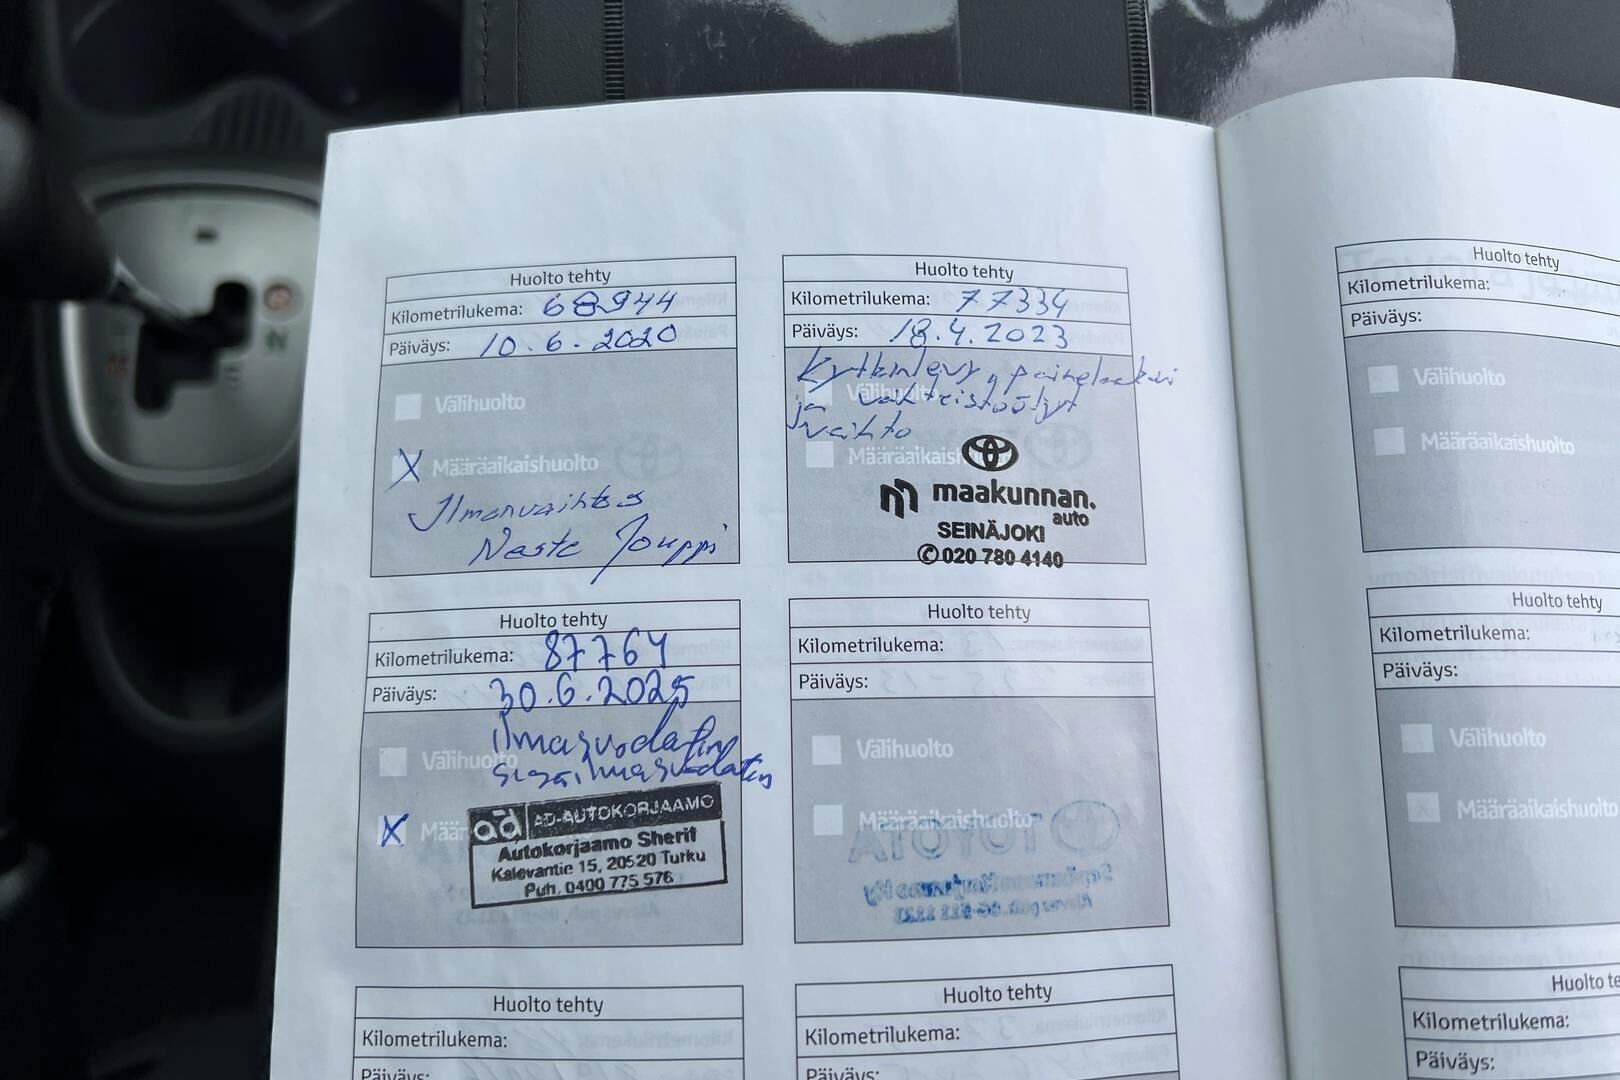 Huolto tehty
Kilometrilukema: 68944
Päiväys: 10.6.2020
Välihuolto
X Määräaikaishuolto
Ilmanvaihtos
Neste Jouppi
Huolto tehty
Kilometrilukema: 77334
Päiväys: 18.4.2023
Kytkinlevy, painelaakeri
ja vakteistoöljyt
vaihto
Välihuolto
Määräaikaish
maakunnan.
auto
SEINÄJOKI
020 780 4140
Huolto tehty
Kilometrilukema: 87764
Päiväys: 30.6.2025
ilmasuodatin
sisäilmasuodatin
Välihuolto
X Määr
ad AD-AUTOKORJAAMO
Autokorjaamo Sherif
Kalevantie 15, 20520 Turku
Puh. 0400 775 576
Huolto tehty
Kilometrilukema:
Päiväys:
Välihuolto
Määräaikaishuolto
Huolto tehty
Kilometrilukema:
Päiväys:
Huolto tehty
Kilometrilukema:
Päiväys:
Huolto tehty
Kilometrilukema:
Päiväys:
Välihuolto
Määräaikaishuolto
Huolto tehty
Kilometrilukema:
Päiväys:
Välihuolto
Määräaikaishuolto
Huolto te
Kilometrilukema:
Päiväys:
N